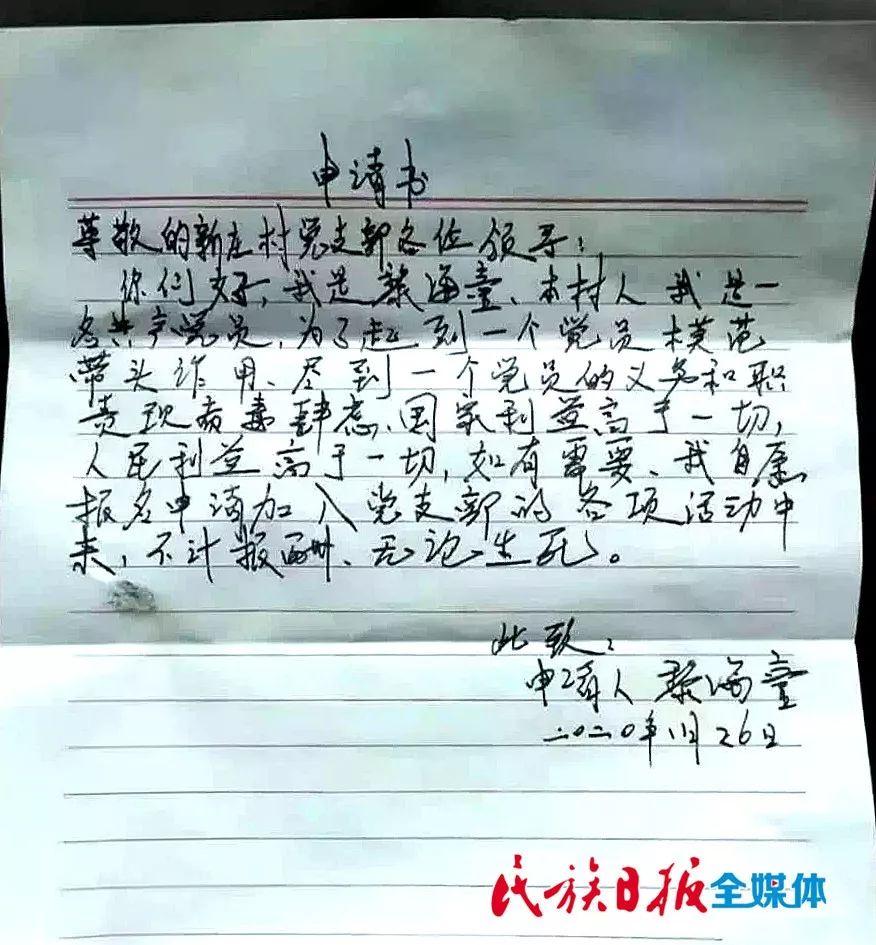 申请书
尊敬的新庄村党支部各位领导：
你们好，我是黎海童、本村人我是一
名共产党员，为了起到一个党员模范
带头作用、尽到一个党员的义务和职
责现病毒肆虐、国家利益高于一切，
人民利益高于一切，如有需要、我自愿
报名申请加入党支部的各项活动中
来，不计报酬、无论生死。
此致：
申请人 海童
二〇二〇年1月26日
民族日报全媒体